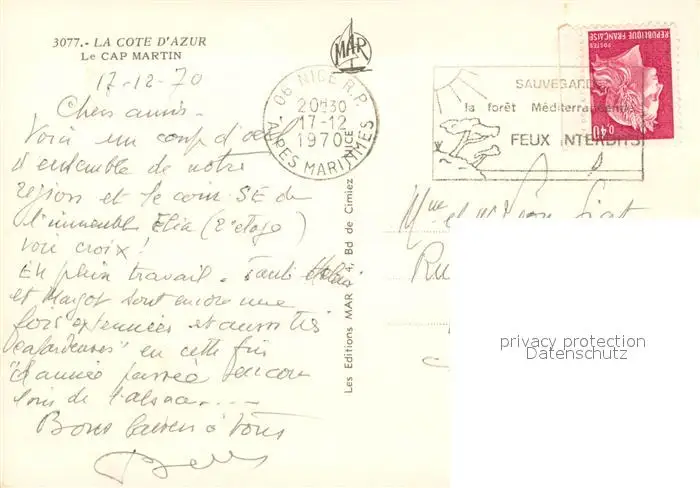 3077.- LA COTE D'AZUR
LE CAP MARTIN
17-12-70
Chers amis.
Voici un coup d'oeil
d'ensemble de notre
région et le coin SE de
l'immeuble Elia (2e étage)
voir croix !
En plein travail. Tante
et Margot sont encore une
fois exténuées et aussi très
"cafardeuses" en cette fin
d'année passée encore
loin de l'alsace....
Bons baisers à Tous
MAR
06 NICE R.P.
20H30
17-12
1970
ALPES MARITIMES
SAUVEGARDEZ
la forêt Méditerranéenne
FEUX INTERDITS
REPUBLIQUE FRANÇAISE
POSTES
0,40
Les Editions MAR Bd de Cimiez NICE
Mme et Mr
Ru
privacy protection
Datenschutz